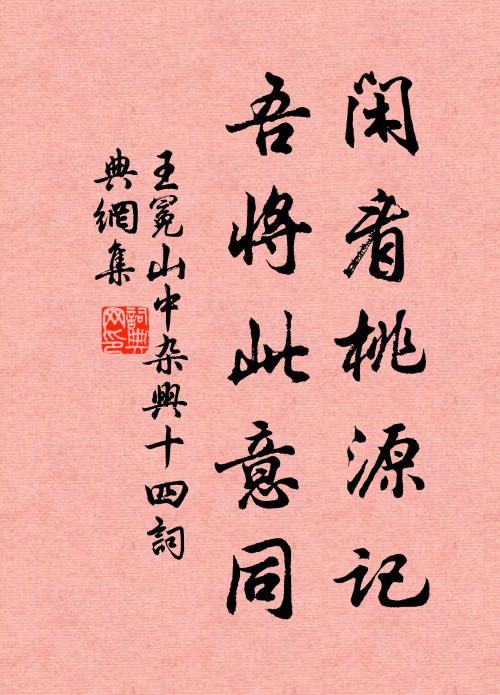 闲看桃源记
吾将此意同
王冕山中杂興十四詞
典網集
詞典
网印